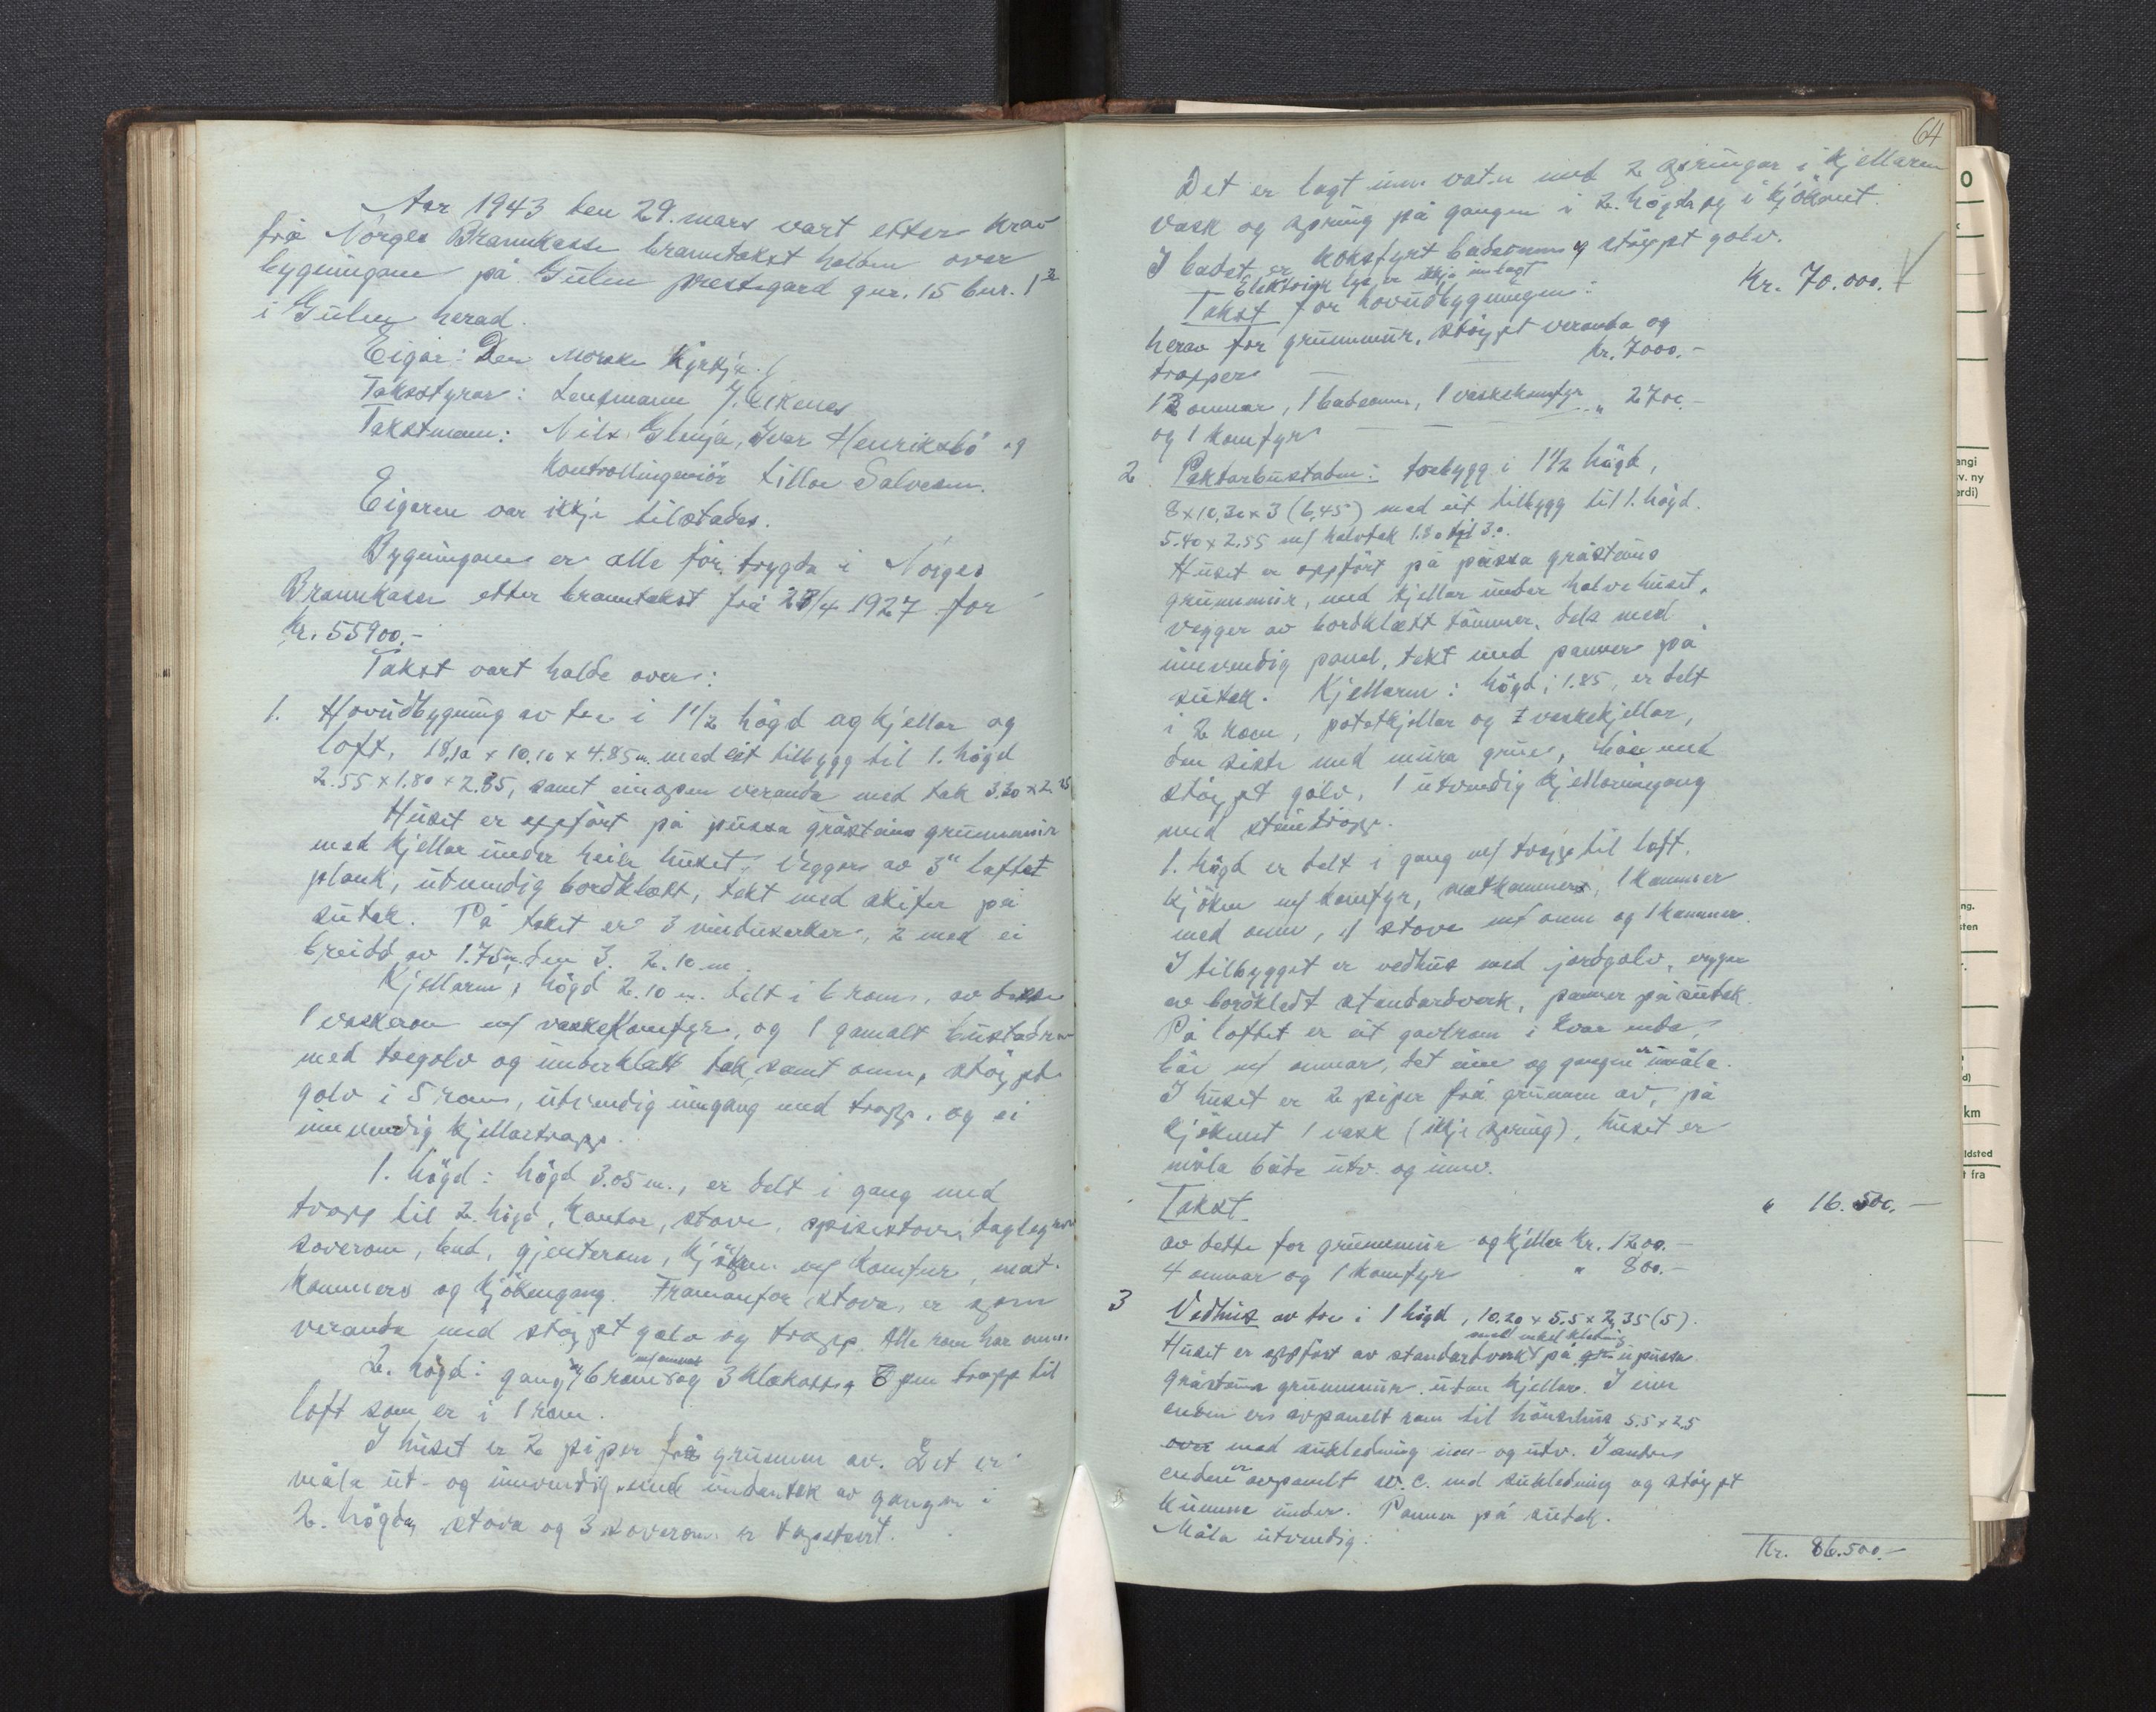 Aar 1943 den 29. mars vart etter krav
frå Norges Brannkasse branntakst halden over
bygningane på Gulen prestegard gnr. 15 bnr. 1
i Gulen herad.
Eigar: Den Norske Kyrkje.
Takststyrar: Lensmann J. Eikenes
Takstmenn: Nils Glenja, Ivar Henriksbö og
Kontrollingeniör Salvesen.
Eigaren var ikkje tilstades.
Bygningane er alle för trygda i Norges
Brannkasse etter branntakst frå 27/4 1927 for
kr. 55900.-
Takst vart halde over:
1. Hovudbygning av tre i 1 1/2 högd og kjellar og
loft, 18,10 x 10.10 x 4.85 m. med eit tilbygg til 1. högd
2.55 x 1.80 x 2.35, samt ein open veranda med tak 3.20 x 2.25
Huset er oppfört på pussa gråsteins grunnmur
med kjellar under heile huset. Veggar av 3" laftet
plank, utvendig bordklædt, tekt med skifer på
sutak. På taket er 3 vindusarker, 2 med ei
breidd av 1.75 m. den 3. 2.10 m.
Kjellaren, högd 2.10 m. delt i 6 rom, av desse
1 vaskerom m/ vaskekomfyr, og 1 gamalt bustadrom
med tregolv og underklædt tak, samt omn, stöypt
golv i 5 rom, utvendig inngang med trapp, og ei
innvendig kjellartrapp.
1. högd: högd 3.05 m., er delt i gang med
trapp til 2. högd, kontor, stove, spisestove, daglegrom
soverom, bad, gjenterom, kjöken m/ komfur, mat-
kammers og kjökengang. Framanfor stova er open
veranda med stöypt golv og trapp. Alle rom har omn.
2. högd: gang, 6 rom m/ omnar og 3 klekott, open trapp til
loft som er i 1 rom.
I huset er 2 piper frå grunnen av. Det er
måla ut- og innvendig med undantak av gangen i
2. högda, stova og 3 soverom er tapetsert.
64
Det er lagt inn vatn med 2 springar i kjellaren
vask og spring på gangen i 2. högda og i kjökenet.
I badet er koksfyrt badeomn og stöypt golv.
Elektrisk lys er ikkje innlagt
Takst for hovudbygningen: Kr. 70.000.-
herav for grunnmur, stöypt veranda og
trapper kr. 7000.-
12 omnar, 1 badeomn, 1 vaskekomfyr
og 1 komfyr " 2700.-
2. Paktarbustaden: trebygg i 1 1/2 högd,
8 x 10,30 x 3 (6,45) med eit tilbygg til 1. högd.
5.40 x 2.55 m/ halvtak 1.80 til 3.
Huset er oppfört på pussa gråsteins
grunnmur, med kjellar under halve huset,
vegger av bordklædt tömmer, dels med
innvendig panel, tekt med panner på
sutak. Kjellaren: högd 1.85, er delt
i 2 rom, potetkjellar og vaskekjellar,
den siste med mura grue, båe med
stöypt golv, 1 utvendig kjellarinngang
med steintrapp.
1. högd er delt i gang m/ trapp til loft,
kjöken m/ komfyr, matkammers, 1 kammer
med omn, stove m/ omn og 1 kammer.
I tilbygget er vedhus med jordgolv, vegger
av bordkledt standardverk, panner på sutak.
På loftet er eit gavlrom i kvar ende,
båe m/ omnar, det eine og gangen er umåla.
I huset er 2 piper frå grunnen av, på
kjökenet 1 vask (ikkje spring), huset er
måla både utv. og innv.
Takst " 16.500.-
av dette for grunnmur og kjellar kr. 1200.-
4 omnar og 1 komfyr " 800.-
3 Vedhus av tre i 1 högd, 10.20 x 5.5 x 2,35 (5).
Huset er oppfört av standardverk med enkel kledning på upussa
gråsteins grunnmur, utan kjellar. I ein
enden er avpanelt rom til hönsehus 5.5 x 2.5
over med sukledning inn- og utv. I andre
enden er avpanelt w.c. med sukledning og stöypt
kumme under. Panner på sutak.
Måla utvendig:
Kr. 86.500.-